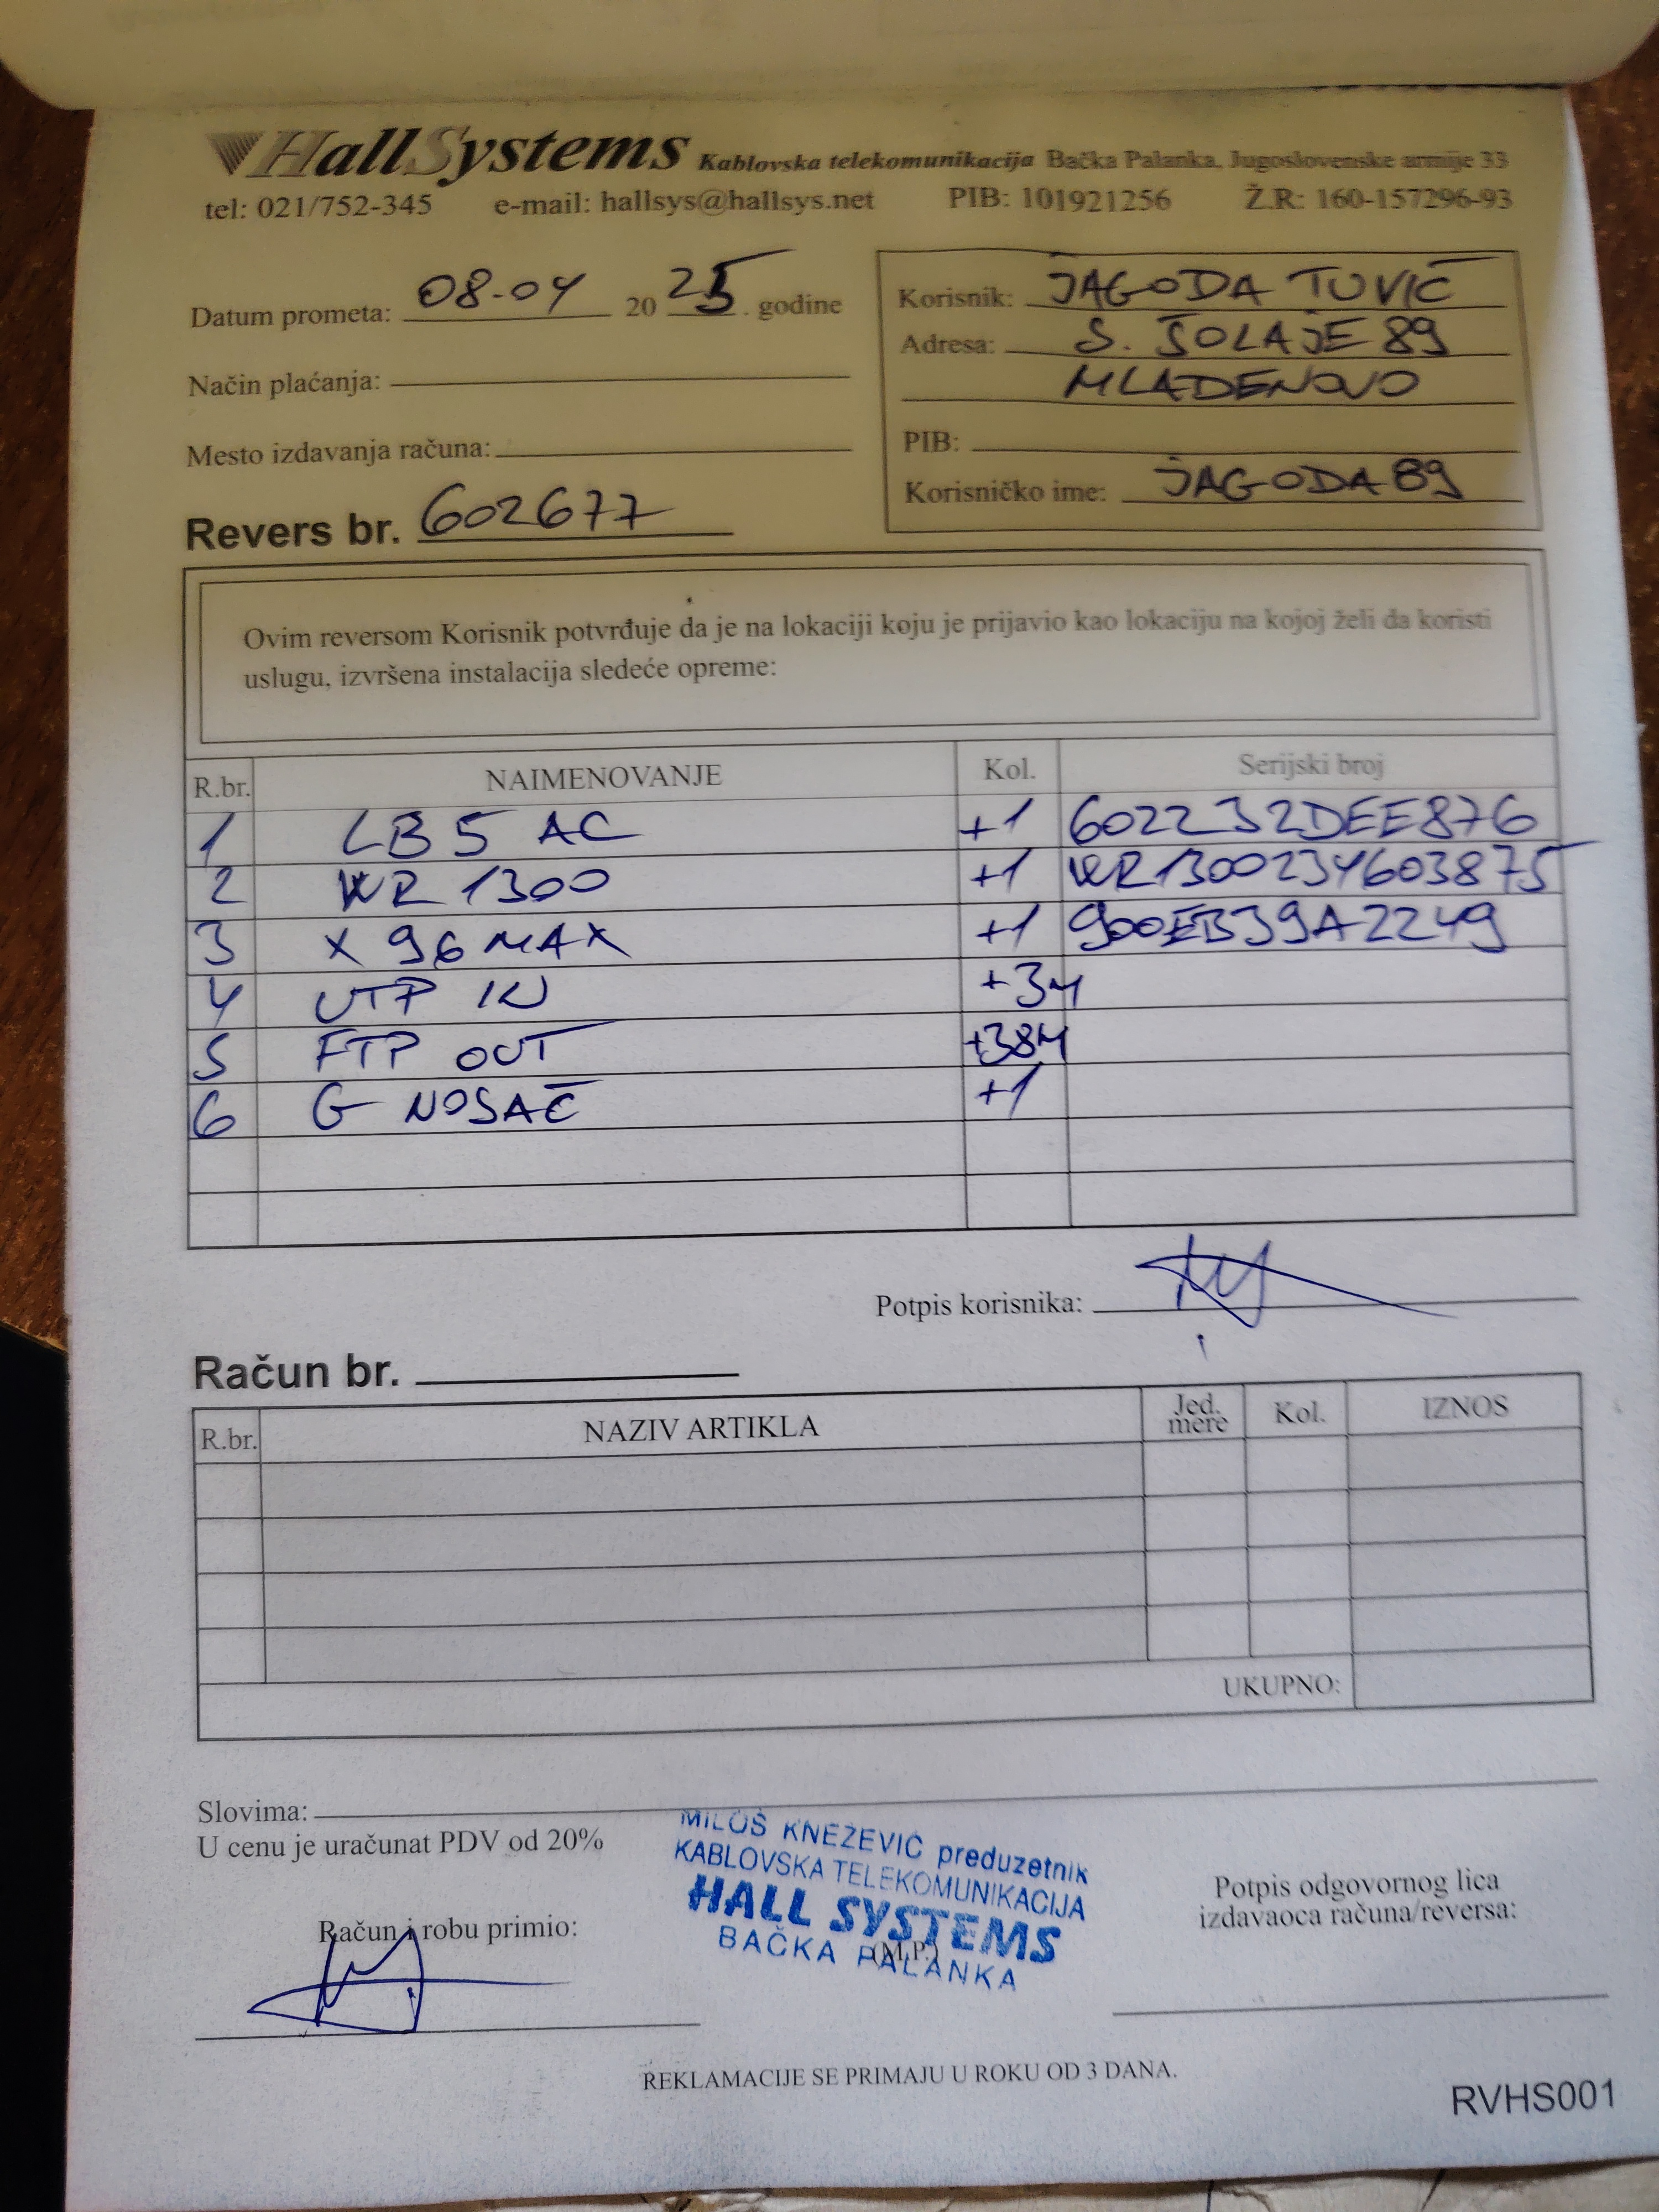 HallSystems Kablovska telekomunikacija Bačka Palanka, Jugoslovenske armije 33
tel: 021/752-345 e-mail: hallsys@hallsys.net PIB: 101921256 Ž.R: 160-157296-93
Datum prometa: 08-04 2025. godine
Način plaćanja:
Mesto izdavanja računa:
Revers br. 602677
Korisnik: JAGODA TUVIĆ
Adresa: S. ŠOLAJE 89
MLADENOVO
PIB:
Korisničko ime: JAGODA89
Ovim reversom Korisnik potvrđuje da je na lokaciji koju je prijavio kao lokaciju na kojoj želi da koristi
uslugu, izvršena instalacija sledeće opreme:
R.br. NAIMENOVANJE Kol. Serijski broj
1 LB 5 AC +1 602232DEE876
2 WR 1300 +1 WR1300234603875
3 X 96 MAX +1 900EB39A2249
4 UTP IN +3M
5 FTP OUT +38M
6 G NOSAČ +1
Potpis korisnika:
Račun br.
R.br. NAZIV ARTIKLA Jed. mere Kol. IZNOS
UKUPNO:
Slovima:
U cenu je uračunat PDV od 20%
MILOŠ KNEŽEVIĆ preduzetnik
KABLOVSKA TELEKOMUNIKACIJA
HALL SYSTEMS
BAČKA PALANKA
(M.P.)
Račun i robu primio:
Potpis odgovornog lica
izdavaoca računa/reversa:
REKLAMACIJE SE PRIMAJU U ROKU OD 3 DANA.
RVHS001